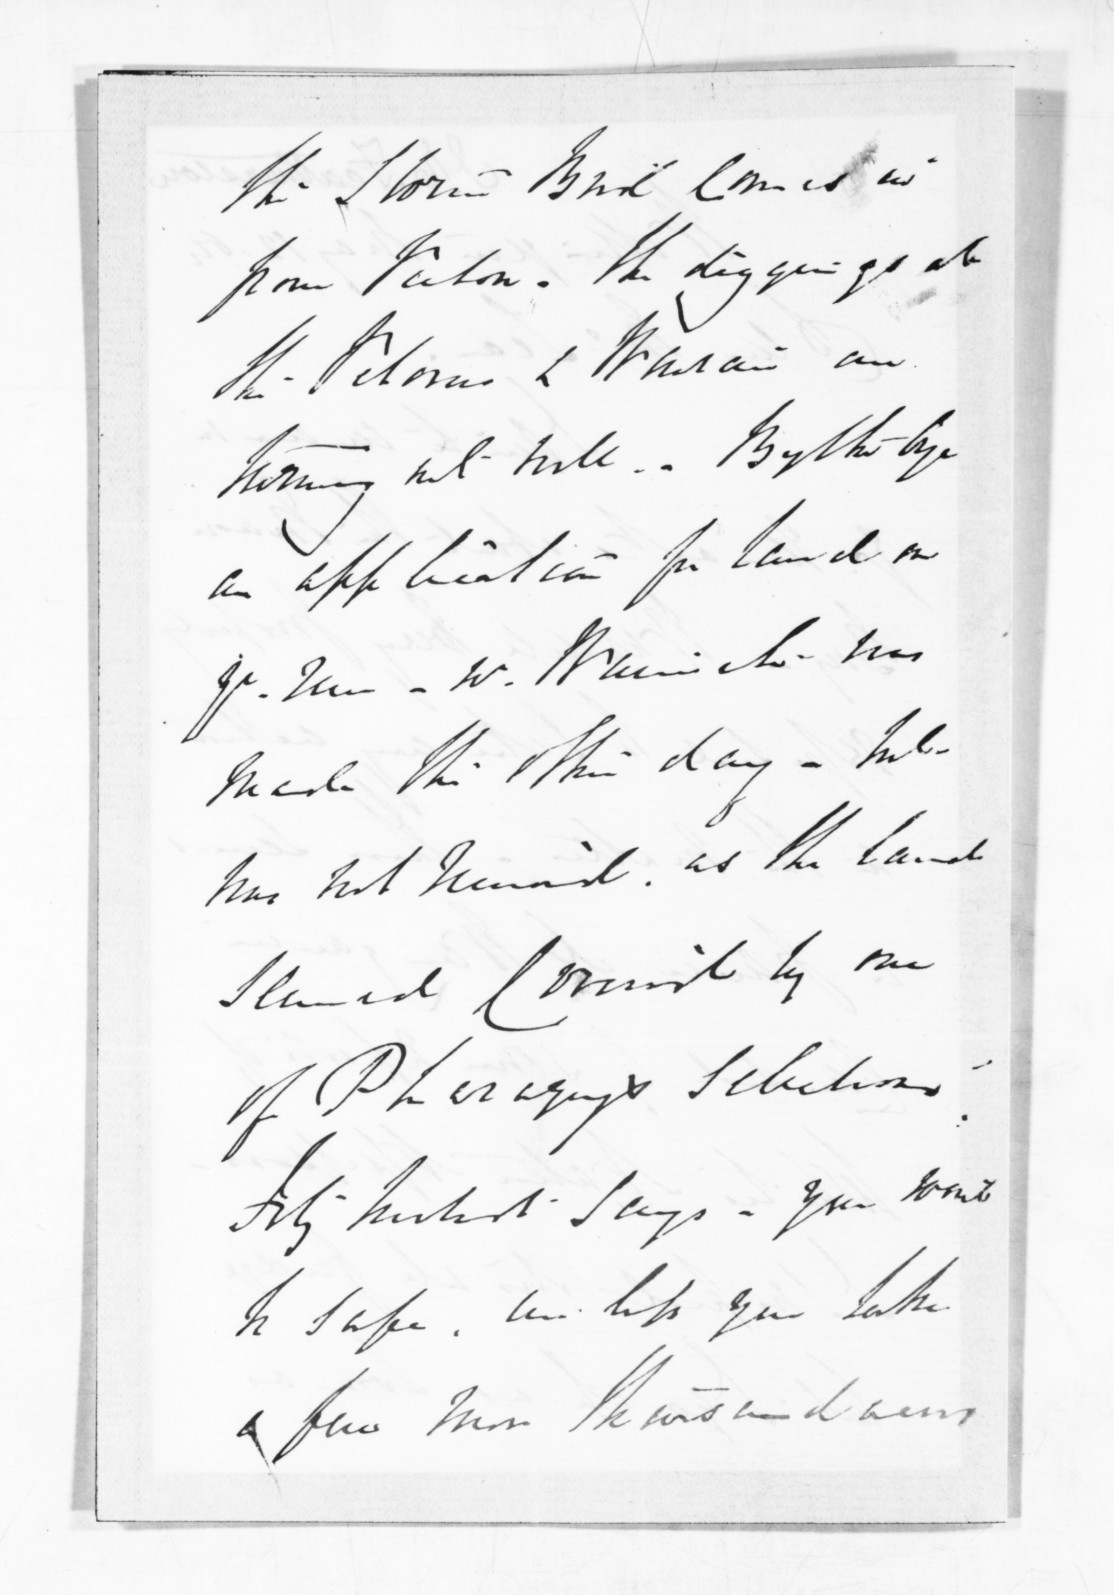 the Storm Bird comes in
from Picton. The diggings at
the Pelorus & Wairau are
turning out well.. By the bye
an application for land on
yr. run - W. Warwick - was
made the other day - but
was not received. as the land
seemed covered by one
of Pharazyn's selections.
Fitzherbert says - you wont
be safe. unless you take
a few more thousand acres